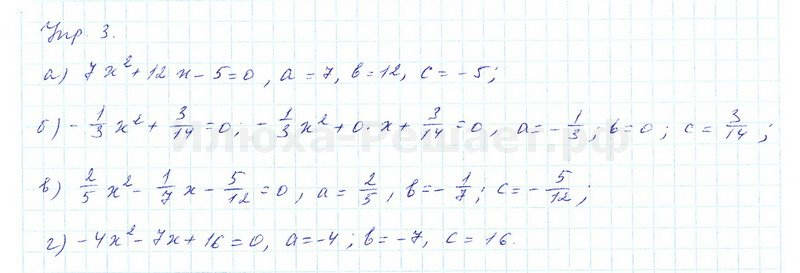 Упр. 3.
а) 7x² + 12x - 5 = 0, a = 7, b = 12, c = -5;
б) -1/3 x² + 3/14 = 0; -1/3 x² + 0·x + 3/14 = 0, a = -1/3; b = 0; c = 3/14;
Илюха-Решает.рф
в) 2/5 x² - 1/7 x - 5/12 = 0, a = 2/5, b = -1/7; c = -5/12;
г) -4x² - 7x + 16 = 0, a = -4; b = -7, c = 16.